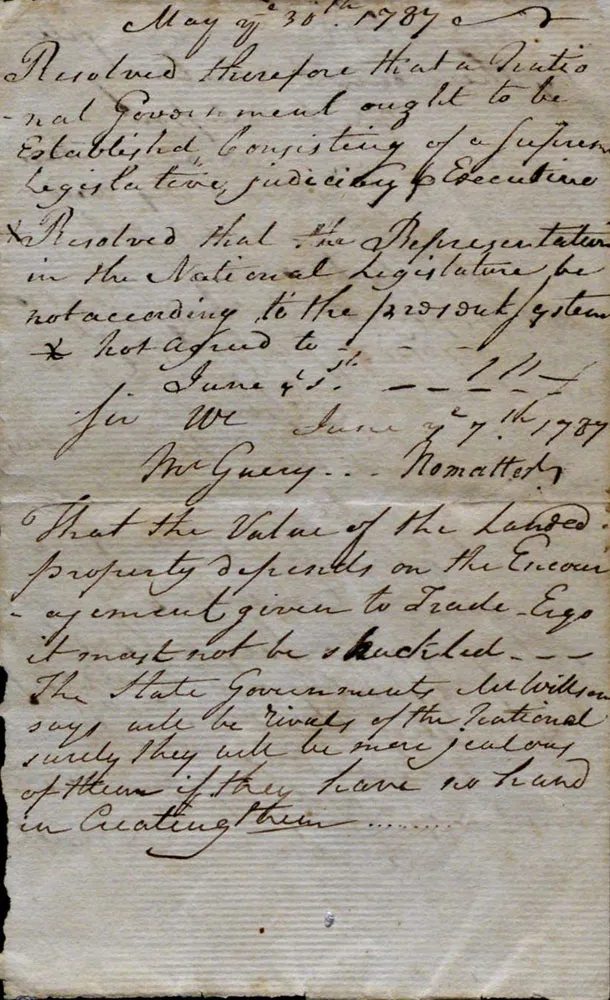 May ye 30th. 1787
Resolved therefore that a Natio
-nal Government ought to be
Established Consisting of a Suprem
Legislative, judiciary & Executive
x Resolved that the Representation
in the National Legislature be
not according to the present System
x not agreed to - - - -
June ye 1st. - - - -
Sir We June ye 7th 1787
Mr Guery - - - No matter
That the Value of the Landed
property depends on the Encour
-agement given to Trade - Ergo
it must not be shackled - - -
The State Governments Mr Willson
says will be Rivals of the National
surely they will be more jealous
of them if they have no hand
in Creating them ........